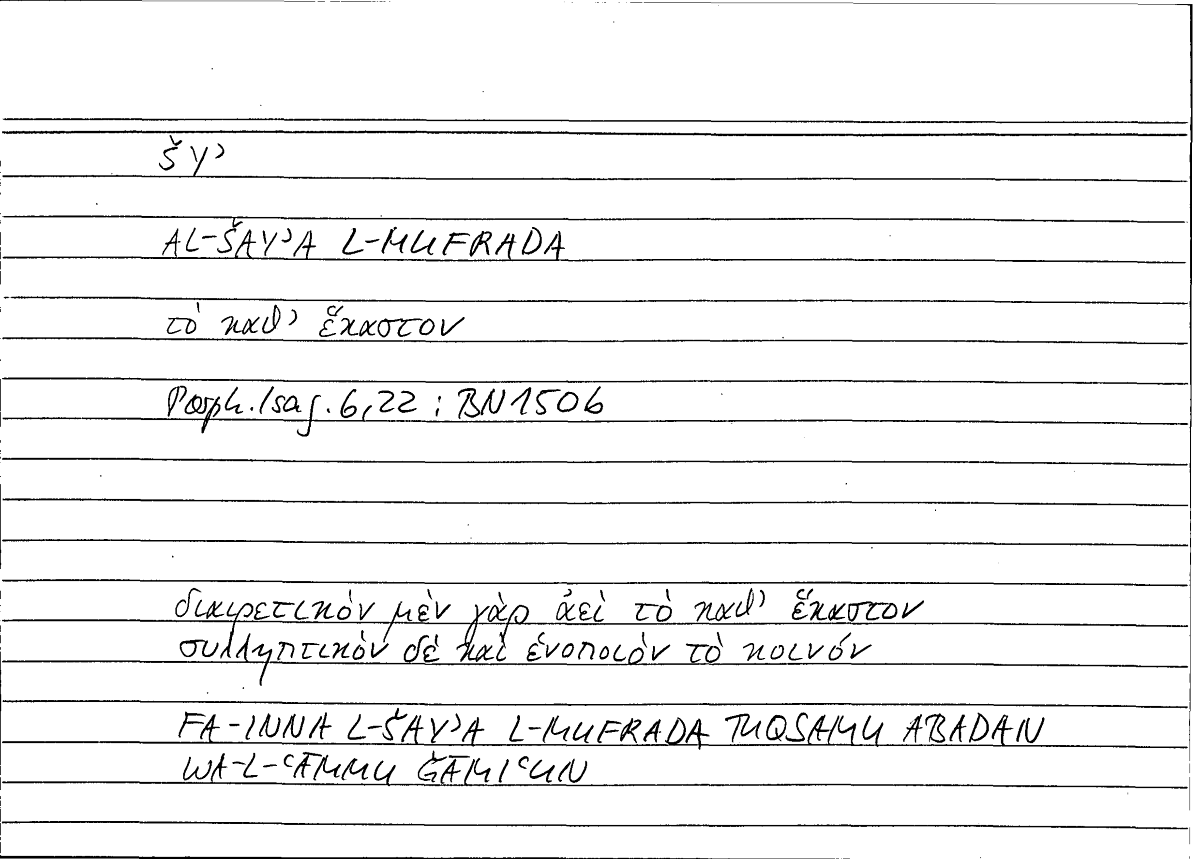 šyʾ
AL-ŠAYʾA L-MUFRADA
τὸ καθ’ ἕκαστον
Porph. Isag. 6,22 : BN 150b
διαιρετικὸν μὲν γὰρ ἀεὶ τὸ καθ’ ἕκαστον
συλληπτικὸν δὲ καὶ ἑνοποιὸν τὸ κοινόν
FA-INNA L-ŠAYʾA L-MUFRADA TUQSAMU ABADAN
WA-L-ʿĀMMU ǦĀMIʿUN